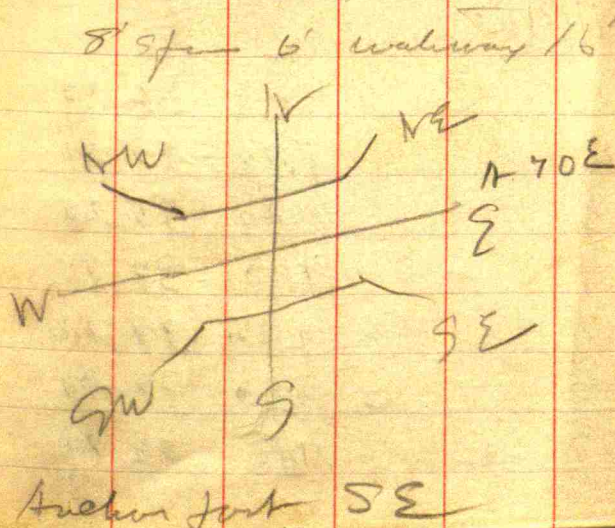 8' Span 6' waterway 16
N
NW NE
N 70 E
E
W
SE
SW S
Anchor post SE